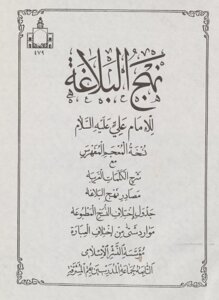 ٤٧٩
نهج البلاغة
للامام علي عليه السلام
نسخة المعجم المفهرس
مع
شرح الكلمات الغريبة
مصادر نهج البلاغة
جدول اختلاف النسخ المطبوعة
موارد شتى من اختلاف العبارة
مؤسسة النشر الاسلامي
التابعة لجماعة المدرسين بقم المشرفة